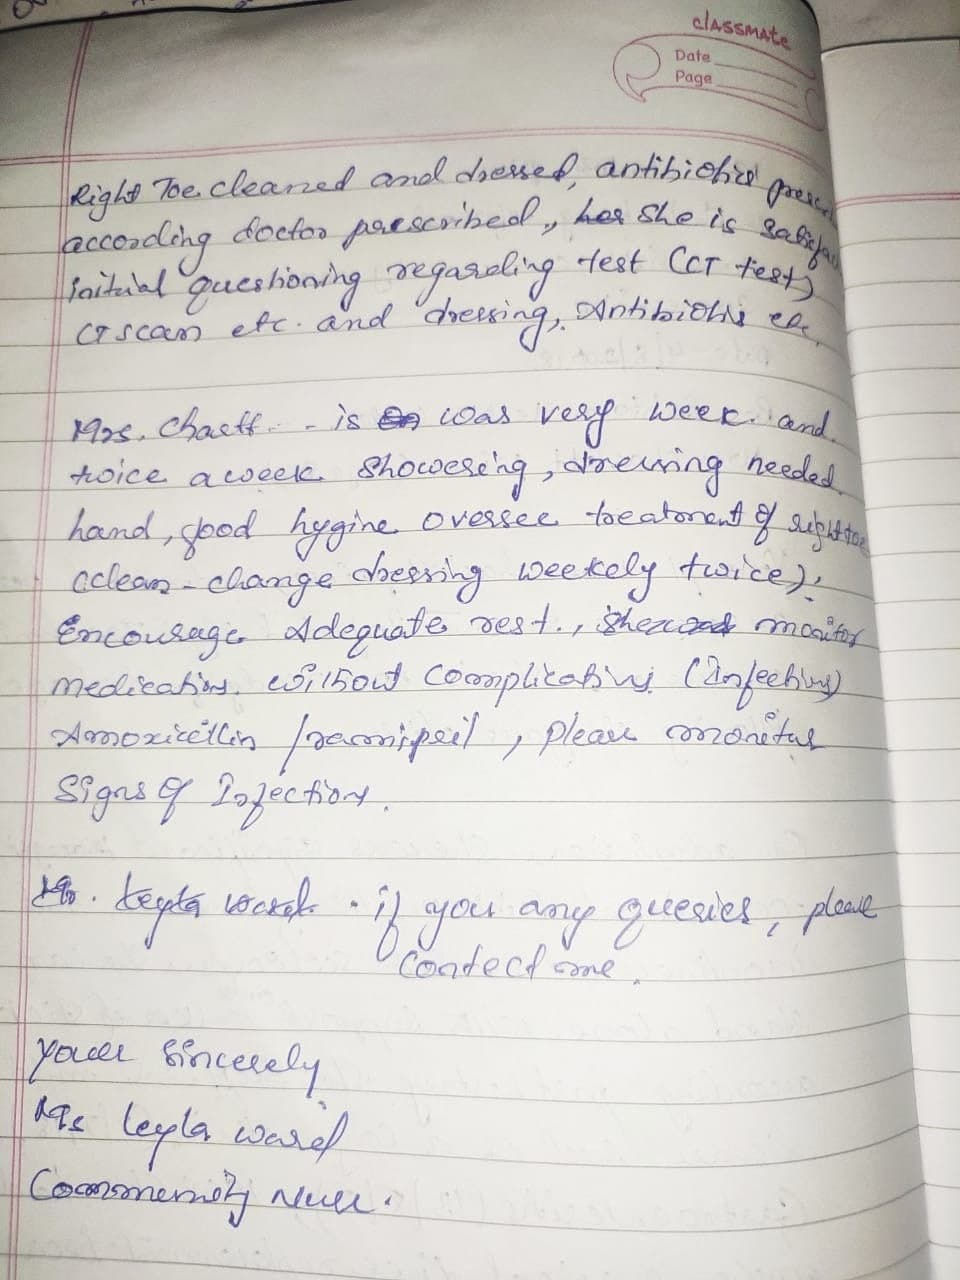 classmate
Date
Page
Right Toe cleaned and dressed, antibiotics
according doctor prescribed, her she is
initial questioning regarding test (CT test)
CT scan etc. and dressing, Antibiotis etc.
Mrs. - is was very week. and
twice a week showering, dressing needed
hand, good hygine oversee treatment of right toe
(clean - change dressing weekely twice).
Encourage Adequate rest., monitor
Medication. without Complications (Infections)
Amoxicillin / , please monitor
Signs of Infection.
leyla ward. if you any queries, please
contect me.
your sincerely
Ms leyla ward
Commenity Nurse.